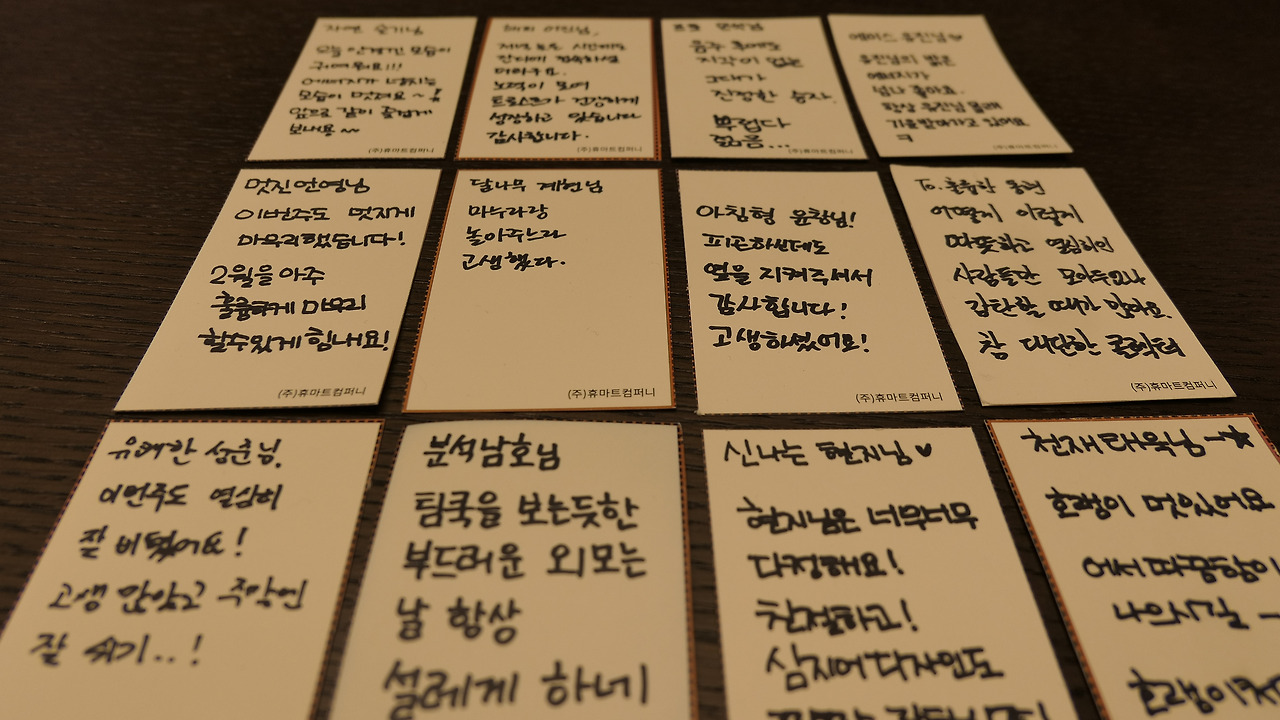 자연 슬기님
오늘 안경낀 모습이
귀여워요!!!
에너지가 넘치는
모습이 멋져요~!
앞으로 같이 즐겁게
보내용~
(주)휴마트컴퍼니
저녁 늦은 시간에도
노력이 모여
트로스트가 건강하게
성장하고 있습니다
감사합니다.
(주)휴마트컴퍼니
음주 후에도
지각이 없는
그대가
진정한 승자.
부럽다
젊음...
(주)휴마트컴퍼니
에이스 유진님♡
유진님의 밝은
에너지가
넘나 좋아요.
항상 유진님 몰래
기운받아가고 있어요
ㅋ
(주)휴마트컴퍼니
멋진안영님
이번주도 멋지게
마무리했습니다!
2월을 아주
훌륭하게 마무리
할수있게 힘내요!
(주)휴마트컴퍼니
달나무 계현님
마누라랑
놀아주느라
고생했다.
(주)휴마트컴퍼니
아침형 윤창님!
피곤하실텐데도
옆을 지켜주셔서
감사합니다!
고생하셨어요!
(주)휴마트컴퍼니
To. 훌륭한 동현
어떻게 이렇게
따뜻하고 열심히인
사람들만 모아두었나
감탄할 때가 많아요.
참 대단한 콜렉터
(주)휴마트컴퍼니
유쾌한 성준님.
이번주도 열심히
잘 비텼어요!
고생 많았고 주말엔
잘 쉬기..!
분석남호님
팀쿡을 보는듯한
부드러운 외모는
날 항상
설레게 하네
신나는 현지님♥
현지님은 너무너무
다정해요!
친절하고!
심지어 디자인도
천재태욱님-★
호랭이 멋있어요
어서따끔함이
나의시길 -